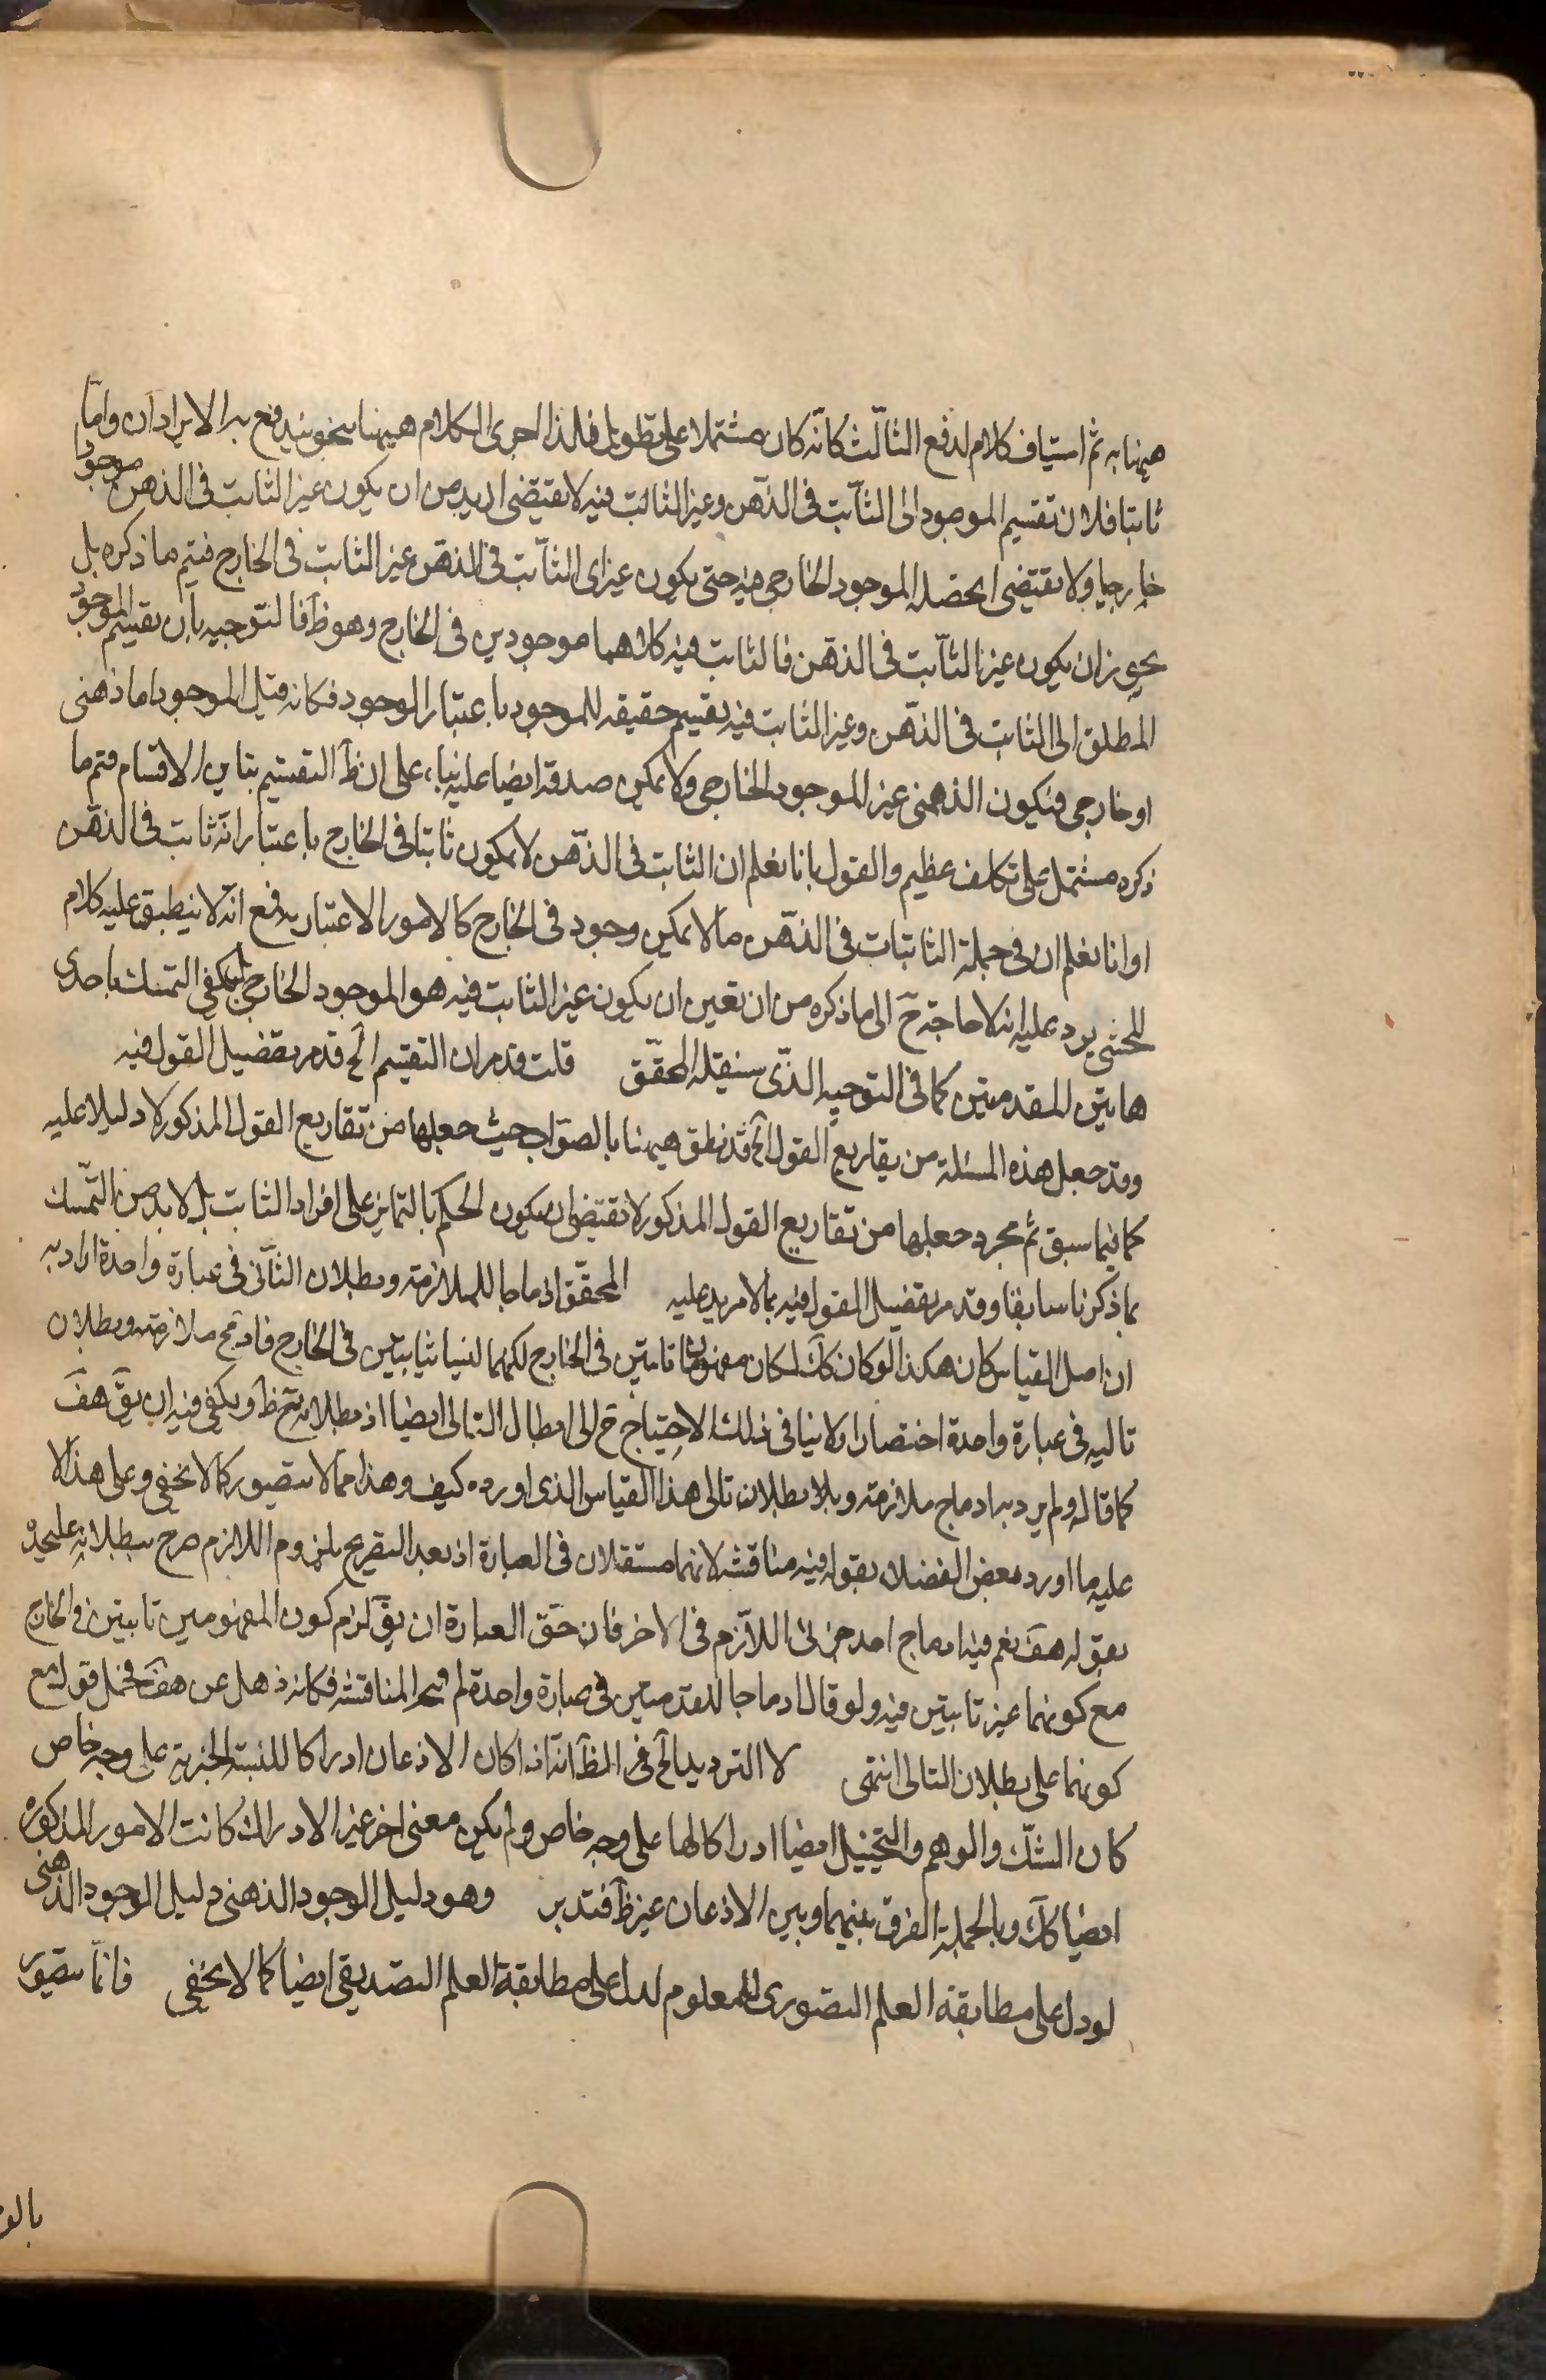 ههنا به ثم استیناف کلام لدفع الثالث کانه کان مشتملا علی تطویل فلذا اجری الکلام ههنا بنحو یندفع به الایرادان واما
ثابتا فلان تقسیم الموجود الی الثابت فی الذهن وغیر الثابت فیه لا یقتضی ازید من ان یکون غیر الثابت فی الذهن موجودا
خارجیا ولا یقتضی ان حصر الموجود الخارجی فیه حتی یکون غیرای الثابت فی الذهن غیر الثابت فی الخارج فیتم ما ذکره بل
یجوز ان یکون غیر الثابت فی الذهن فالثابت فیه کلاهما موجودین فی الخارج وهو ظ فالتوجیه بان تقسیم الموجود
المطلق الی الثابت فی الذهن وغیر الثابت فیه تقسیم حقیقه للموجود باعتبار الوجود فکانه قیل الموجود اما ذهنی
او خارجی فیکون الذهنی غیر الموجود الخارجی ولا یمکن صدقه ایضا علیه بناء علی ان ظ التقسیم تباین الاقسام فتم ما
ذکره مشتمل علی تکلف عظیم والقول بانا نعلم ان الثابت فی الذهن لا یکون ثابتا فی الخارج باعتبار انه ثابت فی الذهن
او انا نعلم ان فی جملة الثابتات فی الذهن ما لا یمکن وجود فی الخارج کالامور الاعتباریه فمع انه لا ینطبق علیه کلام
المحشی یرد علیه انه لا حاجة ح الی ما ذکره من ان تعین ان یکون غیر الثابت فیه هو الموجود الخارجی بل یکفی التمسک باحدی
هاتین المقدمتین کما فی التوجیه الذی سینقله المحقق قلت قد مر ان التقسیم الخ قد مر تفضیل القول فیه
وقد جعل هذه المسئلة من تفاریع القول الخ قد نطق ههنا بالصواب حیث جعلها من تفاریع القول المذکور لا دلیلا علیه
کما فیما سبق ثم مجرد جعلها من تفاریع القول المذکور لا یقتضی ان یکون الحکم بالتمایز علی افراد الثابت بل لا بد من التمسک
بما ذکرنا سابقا وقد مر تفضیل القول فیه بما لا مزید علیه المحقق ادماجا للملازمة وبطلان الثانی فی عبارة واحدة اراد به
ان اصل القیاس کان هکذا لو کان کک لکان مفهومان ثابتین فی الخارج لکنهما لیسا ثابتین فی الخارج فادمج ملازمته وبطلان
تالیه فی عبارة واحدة اختصارا ولا ینافی ذلک الاحتیاج ح الی ابطال التالی ایضا اذ بطلانه ح ظ ویکفی فیه ان یق هف
کما قاله ولم یرد به ادماج ملازمته وبلا بطلان تالی هذا القیاس الذی اورده کیف وهذا مما لا یتصور کما لا یخفی وعلی هذا لا
علیه ما اورد بعض الفضلاء بقوله فیه مناقشه لانهما مستقلان فی العبارة اذ بعد التفریع بلزوم اللازم صرح ببطلانه علیحدة
بقوله هف نعم فیه ادماج احد جزئی اللازم فی الاخر فان حق العبارة ان یق لزم کون المفهومین ثابتین فی الخارج
مع کونهما غیر ثابتین فیه ولو قال ادماجا للمقدمتین فی عبارة واحدة لم یتجه المناقشه فکانه ذهل عن هف فحمل قوله مع
کونهما علی بطلان التالی انتهی لا التردید الخ فی المظ انه اذا کان الاذعان ادراکا للنسبة الخبریة علی وجه خاص
کان الشک والوهم والتخییل ایضا ادراکا لها علی وجه خاص ولم یکن معنی اخر غیر الادراک کانت الامور المذکورة
ایضا کک وبالجملة الفرق بینهما وبین الاذعان غیر ظ فتدبر وهو دلیل الوجود الذهنی دلیل الوجود الذهنی
لو دل علی مطابقة العلم التصوری للمعلوم لدل علی مطابقة العلم التصدیقی ایضا کما لا یخفی فانما یتصور